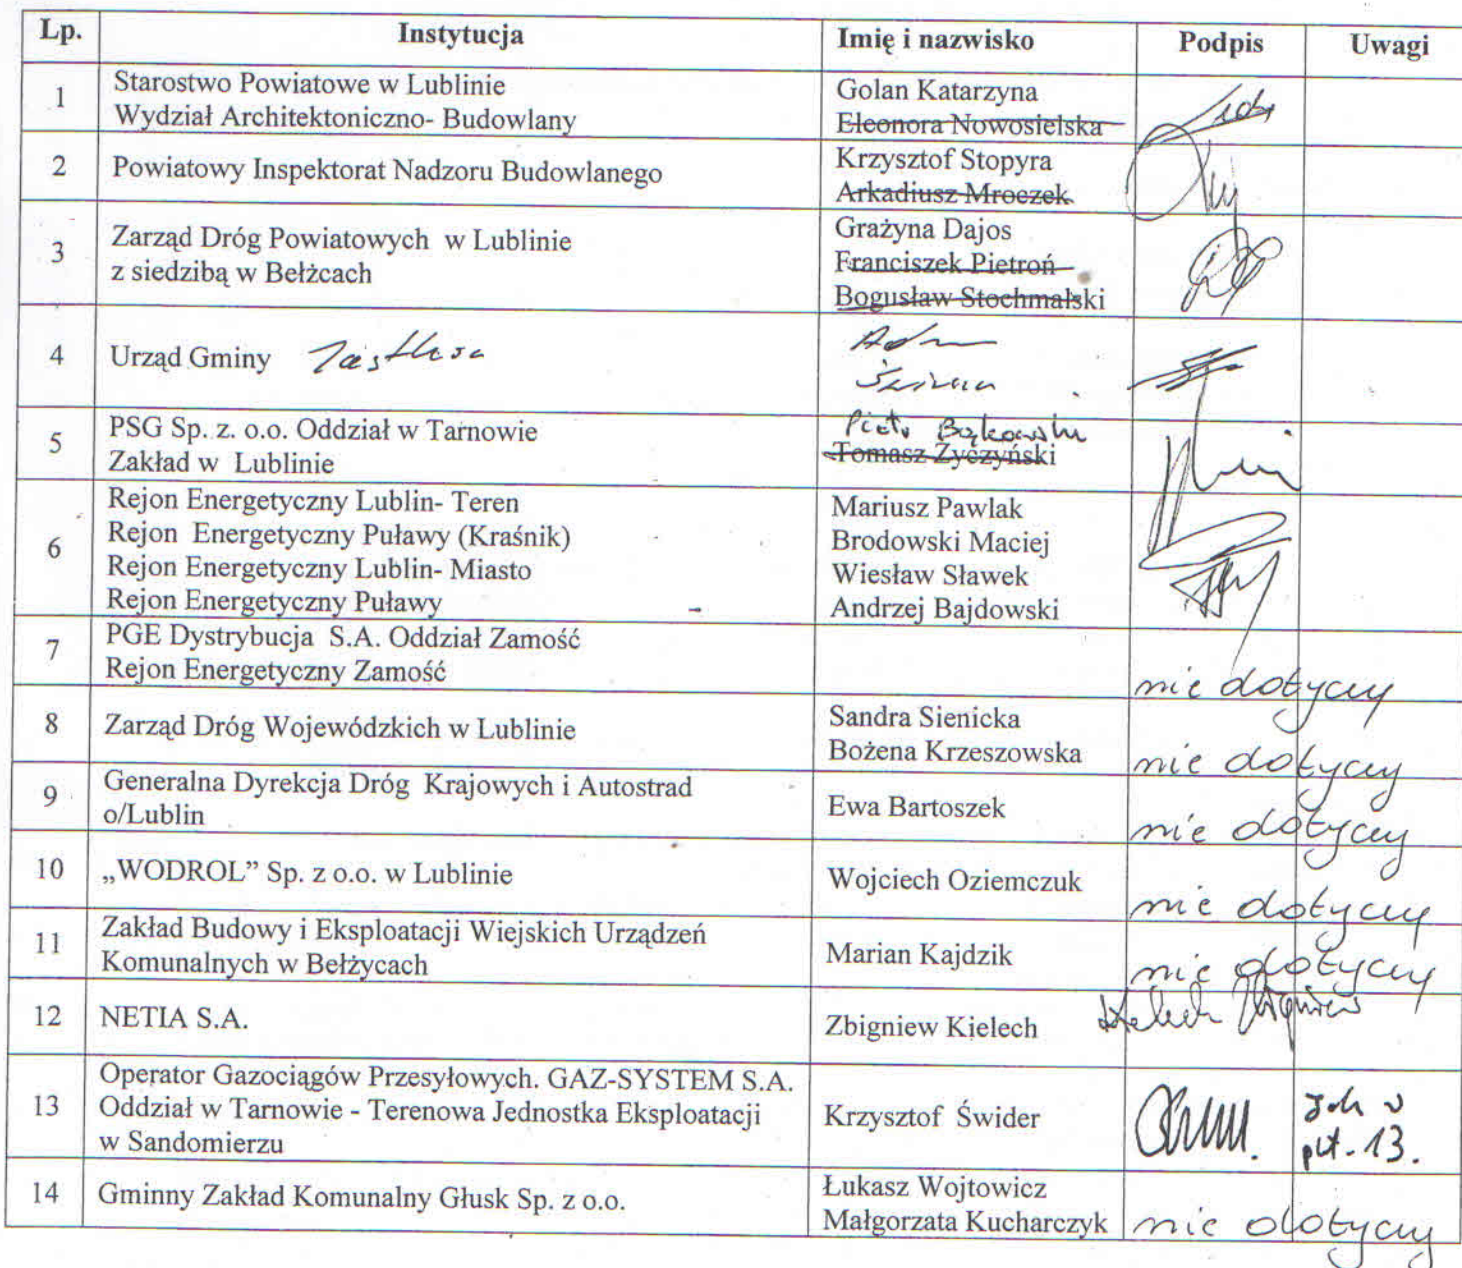 Lp. Instytucja Imię i nazwisko Podpis Uwagi
1 Starostwo Powiatowe w Lublinie Golan Katarzyna
Wydział Architektoniczno- Budowlany Eleonora Nowosielska
2 Powiatowy Inspektorat Nadzoru Budowlanego Krzysztof Stopyra
Arkadiusz Mroczek
3 Zarząd Dróg Powiatowych w Lublinie Grażyna Dajos
z siedzibą w Bełżcach Franciszek Pietroń
Bogusław Stochmalski
4 Urząd Gminy
5 PSG Sp. z. o.o. Oddział w Tarnowie Piotr Bąkowski
Zakład w Lublinie Tomasz Życzyński
6 Rejon Energetyczny Lublin- Teren Mariusz Pawlak
Rejon Energetyczny Puławy (Kraśnik) Brodowski Maciej
Rejon Energetyczny Lublin- Miasto Wiesław Sławek
Rejon Energetyczny Puławy Andrzej Bajdowski
7 PGE Dystrybucja S.A. Oddział Zamość
Rejon Energetyczny Zamość nie dotyczy
8 Zarząd Dróg Wojewódzkich w Lublinie Sandra Sienicka
Bożena Krzeszowska nie dotyczy
9 Generalna Dyrekcja Dróg Krajowych i Autostrad
o/Lublin Ewa Bartoszek nie dotyczy
10 „WODROL” Sp. z o.o. w Lublinie Wojciech Oziemczuk nie dotyczy
11 Zakład Budowy i Eksploatacji Wiejskich Urządzeń
Komunalnych w Bełżycach Marian Kajdzik nie dotyczy
12 NETIA S.A. Zbigniew Kielech Kielech Zbigniew
13 Operator Gazociągów Przesyłowych. GAZ-SYSTEM S.A.
Oddział w Tarnowie - Terenowa Jednostka Eksploatacji Krzysztof Świder jak w
w Sandomierzu pkt. 13.
14 Gminny Zakład Komunalny Głusk Sp. z o.o. Łukasz Wojtowicz
Małgorzata Kucharczyk nie dotyczy